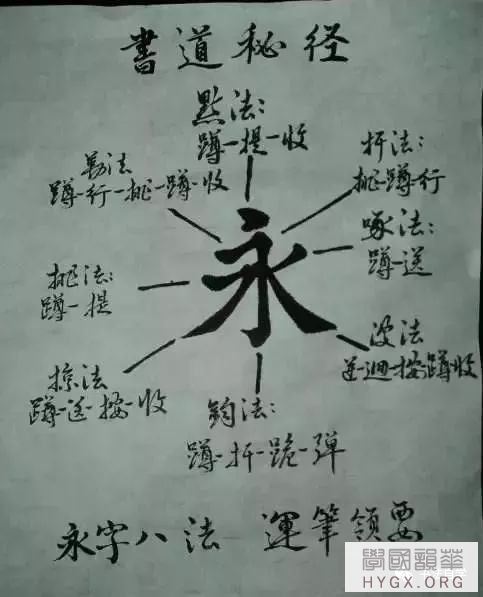 書道秘径
點法:
蹲-提-收
勒法
蹲-行-挑-蹲-收
扞法:
挑-蹲-行
啄法:
蹲-送
挑法:
蹲-提
永
波法
蹲-收
掠法
蹲-送-按-收
鈎法:
蹲-扞-跪-弹
永字八法 運筆領要
學國韻華
HYGX.ORG